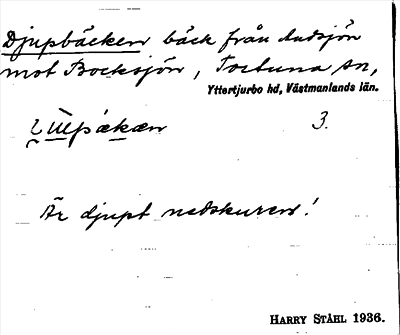 Djupbäcken bäck från Andsjön
mot Bocksjön, Tortuna sn,
Yttertjurbo hd, Västmanlands län.
3.
Är djupt nedskuren!
HARRY STÅHL 1936.